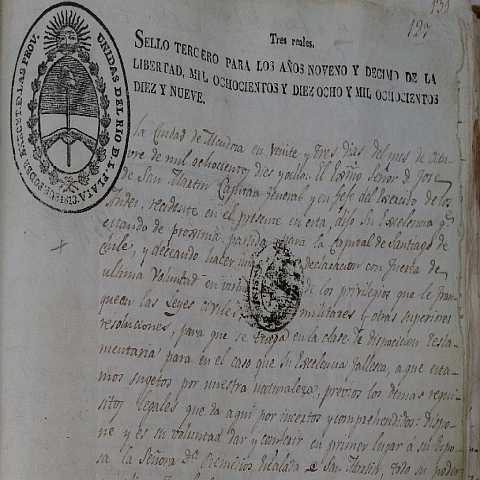 131
127
Tres reales.
SELLO TERCERO PARA LOS AÑOS NOVENO Y DECIMO DE LA
LIBERTAD, MIL OCHOCIENTOS Y DIEZ OCHO Y MIL OCHOCIENTOS
DIEZ Y NUEVE.
PROV. UNIDAS DEL RIO D. L. PLATA
la Ciudad de Mendoza en veinte y tres dias del mes de Octu
bre de mil ochocientos dies y ocho: El Exmo Señor Dn Jose
de San Martin Capitan General y en Jefe del Exercito de los
Andes, recidente en el presente en esta, dijo Su Excelencia qe
estando de proxima partida para la Capital de Santiago de
Chile, y deceando hacer una declaracion con fuerza de
ultima voluntad en de los privilegios que le fran
queen las Leyes civiles militares y otras superiores
resoluciones, para que se tenga en la clase de disposicion testa
mentaria para en el caso que Su Excelencia fallesca, a que esta
mos sugetos por nuestra naturaleza, previos los demas requi
sitos legales que da aqui por incertos y comprehendidos: dispo
ne y es su voluntad dar y conferir en primer lugar á su Espo
sa la Señora Da Remedios Escalada de San Martin, todo su poder